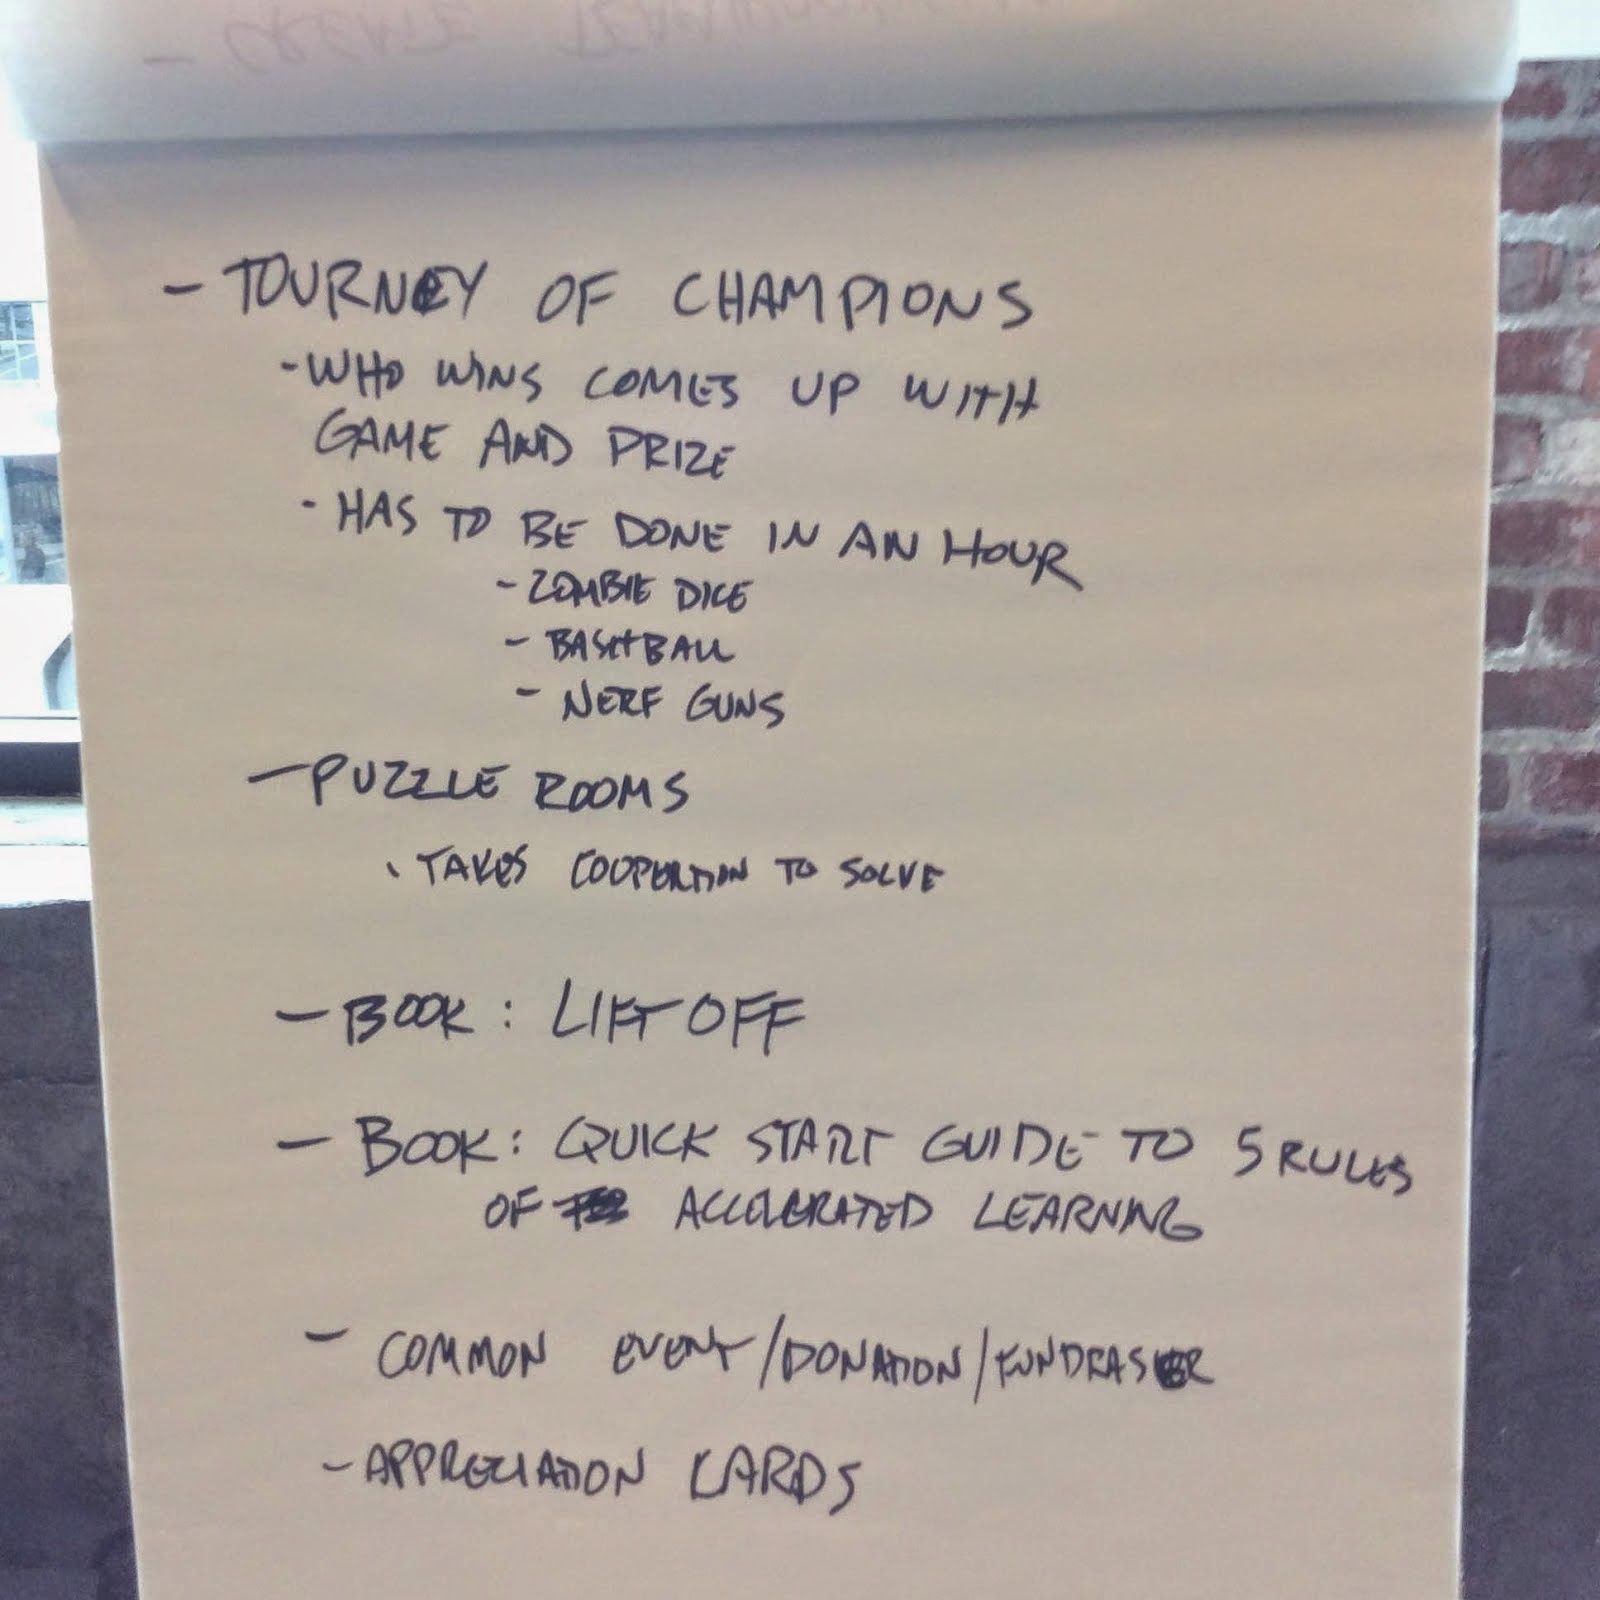 - TOURNEY OF CHAMPIONS
- WHO WINS COMES UP WITH
GAME AND PRIZE
- HAS TO BE DONE IN AN HOUR
- ZOMBIE DICE
- BASHBALL
- NERF GUNS
- PUZZLE ROOMS
- TAKES COOPERTION TO SOLVE
- BOOK: LIFTOFF
- BOOK: QUICK START GUIDE TO 5 RULES
OF ACCELERATED LEARNING
- COMMON EVENT/DONATION/FUNDRASER
- APPRECIATION CARDS